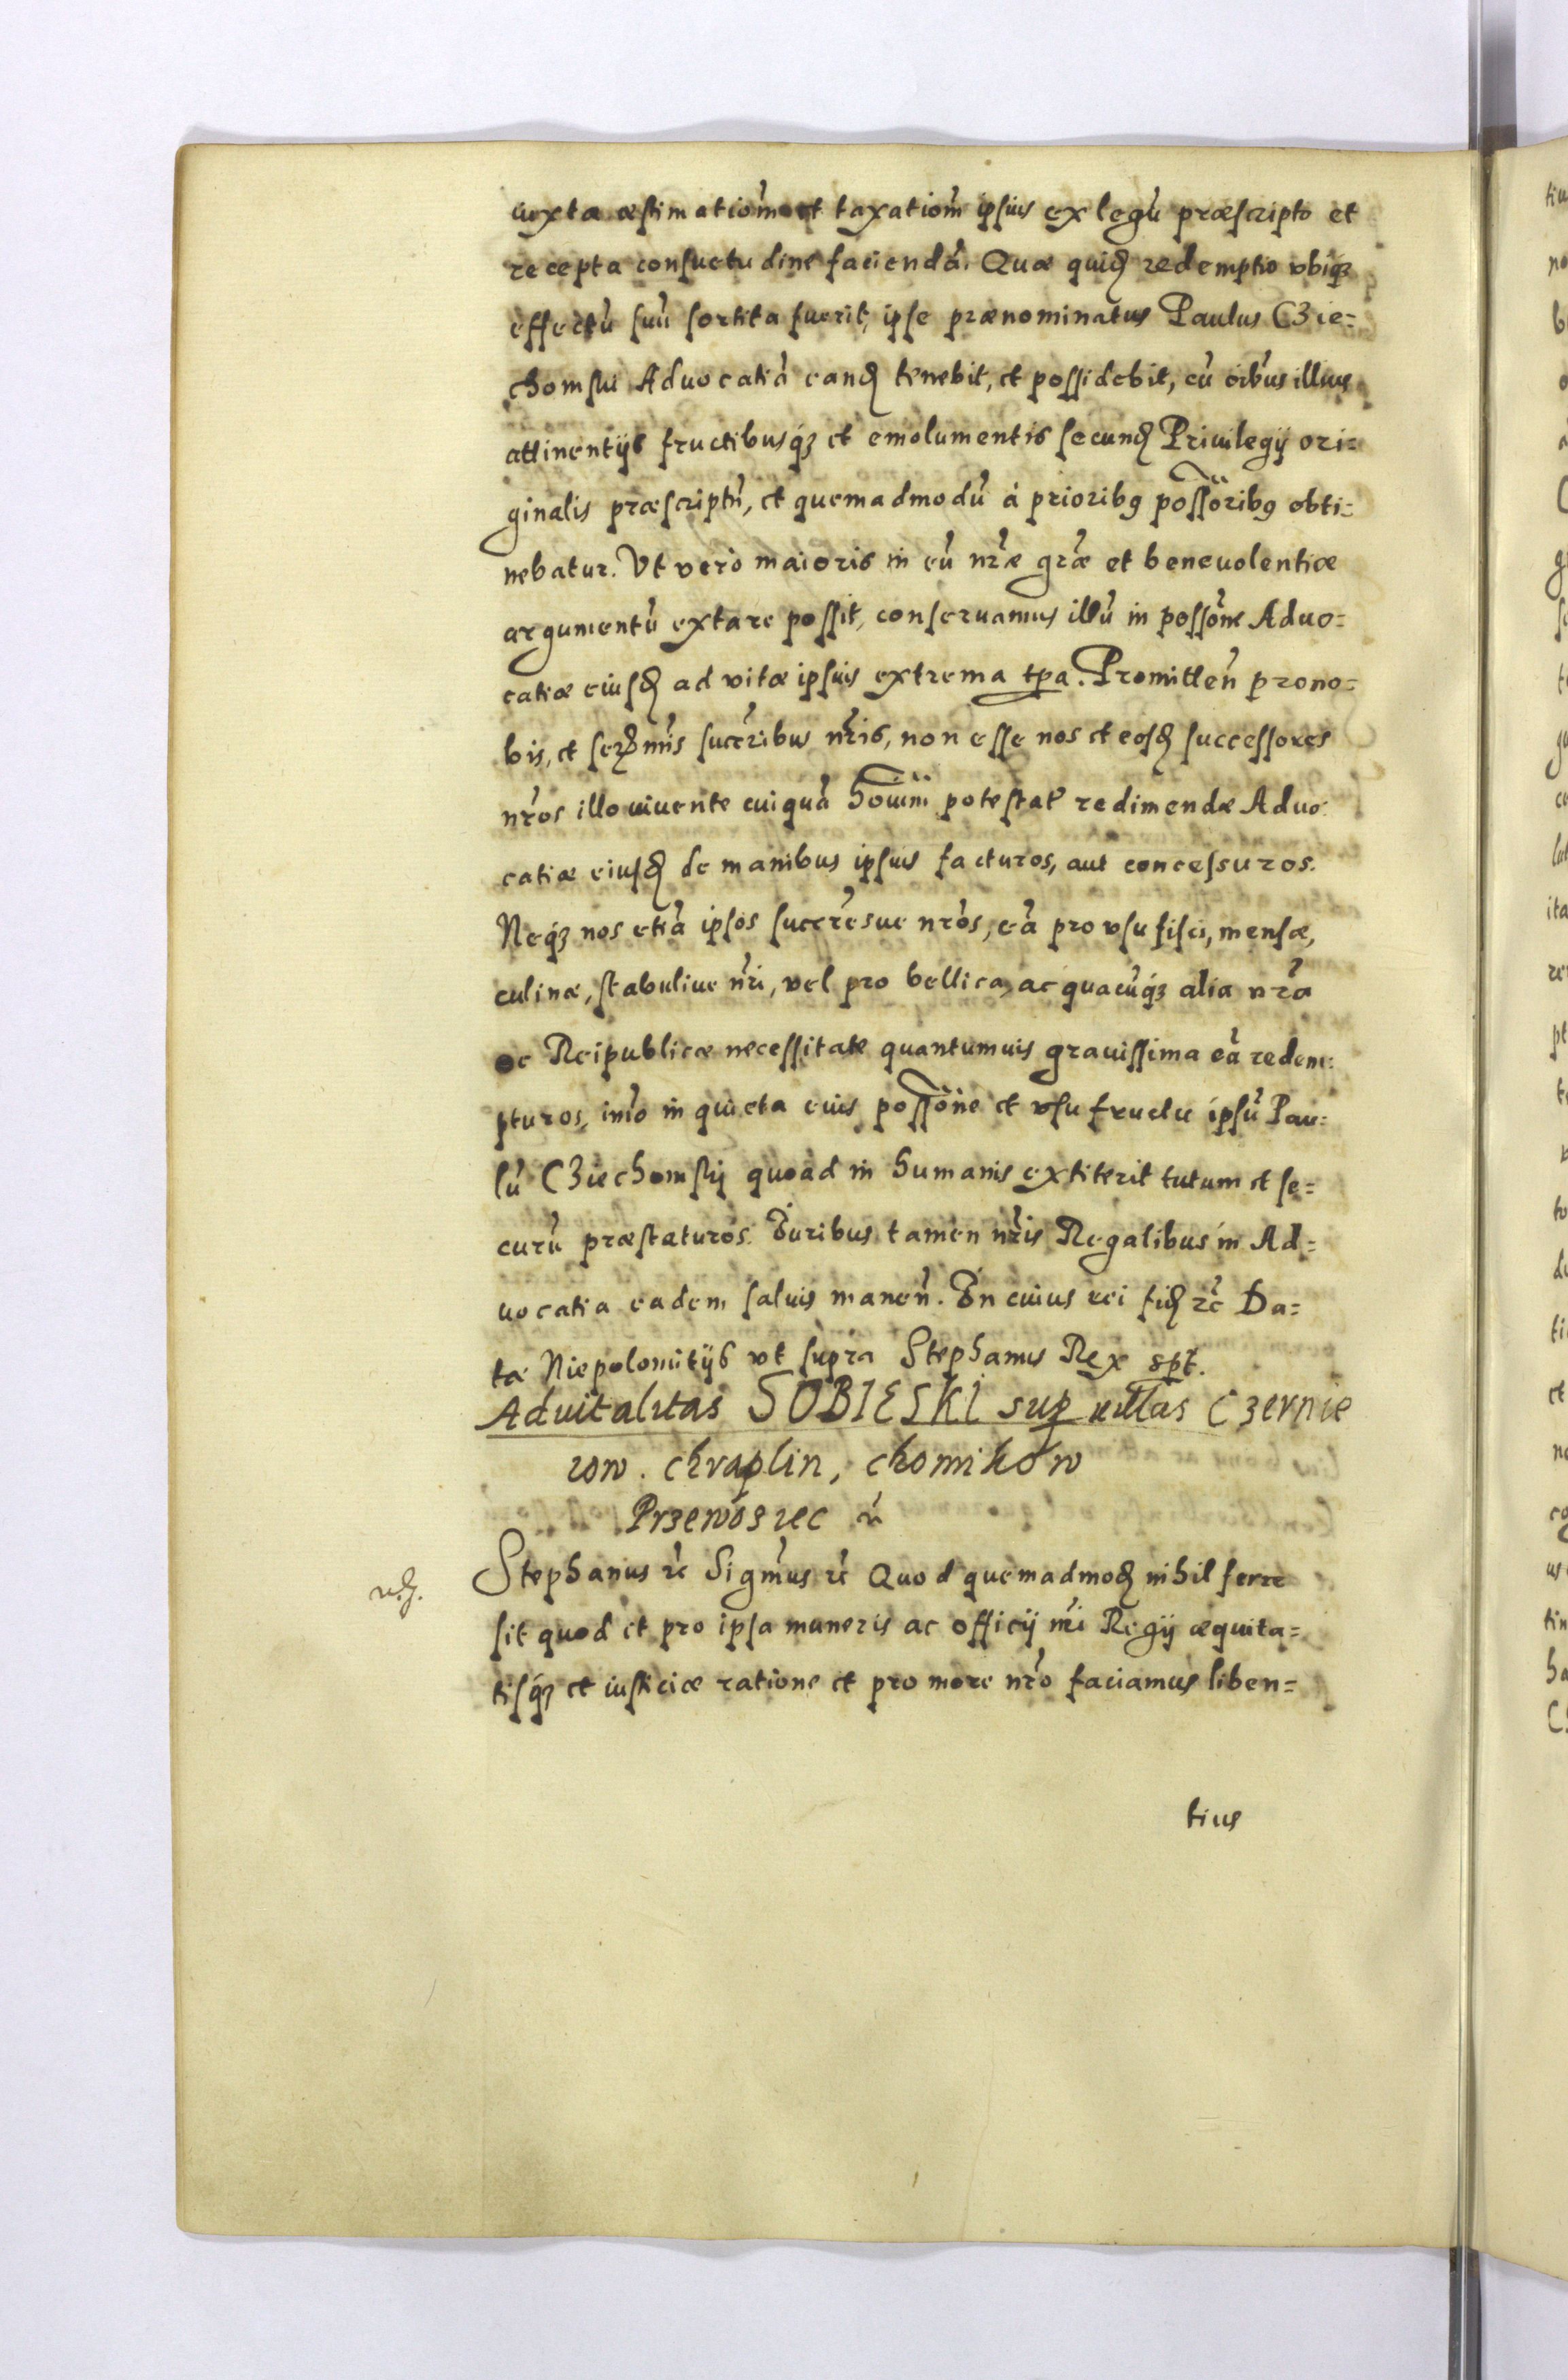 iuxta æstimatiom̃ et taxatiom̃ ipsius ex legũ præscripto et
recepta consuetudine faciendã. Quæ quid̃ redemptio vbiq3
effectũ suũ sortita fuerit, ipse prænominatus Paulus C3ie=
chomski Aduocatiã eand̃ tenebit, et possidebit, cũ oĩbus illius
attinentijs fructibusq3 et emolumentis secund̃ Priuilegij ori=
ginalis præscriptũ, et quemadmodũ à prioribꝰ possõribꝰ obti=
nebatur. Vt verò maioris in eũ nr̃æ gr̃æ et beneuolentiæ
argumentũ extare possit, conseruamus illũ in possõne Aduo=
catiæ eiusd̃ ad vitæ ipsius extrema tp̃a. Promitten̄ pro no=
bis, et ser̃mis succr̃ibus nr̃is, non esse nos et eosd̃ successores
nr̃os illo viuente cuiquã hoĩm potestat̃ redimendæ Aduo
catiæ eiusd̃ de manibus ipsius facturos, aut concessuros.
Neq3 nos etiã ipsos succr̃esue nr̃os, eã pro vsu fisci, mensæ,
culinæ, stabuliue nr̃i, vel pro bellica, ac quacũq3 alia nr̃a
ac Reipublicæ necessitate quantumuis grauissima eã redem=
pturos, im̃o in quieta eius possõne et vsufructu ipsũ Pau=
lũ C3iechomskij quoad in humanis extiterit tutum et se=
curũ præstaturos. Iuribus tamen nr̃is Regalibus in Ad=
uocatia eadem saluis manen̄. In cuius rei fid̃ rc̃ Da=
tæ Niepolomitijs vt supra Stephanus Rex spt̃.
Aduitalitas SOBIESKI sup villas C3ernie
iow. chraplin, chomikow
Pr3ewos iec
Stephanus rc̃ Sigm̃us rc̃ Quod quemadmod̃ nihil ferre
sit quod et pro ipsa muneris ac officij nr̃i Regij æquita=
tisq3 et iusticiæ ratione et pro more nr̃o faciamus liben=
tius